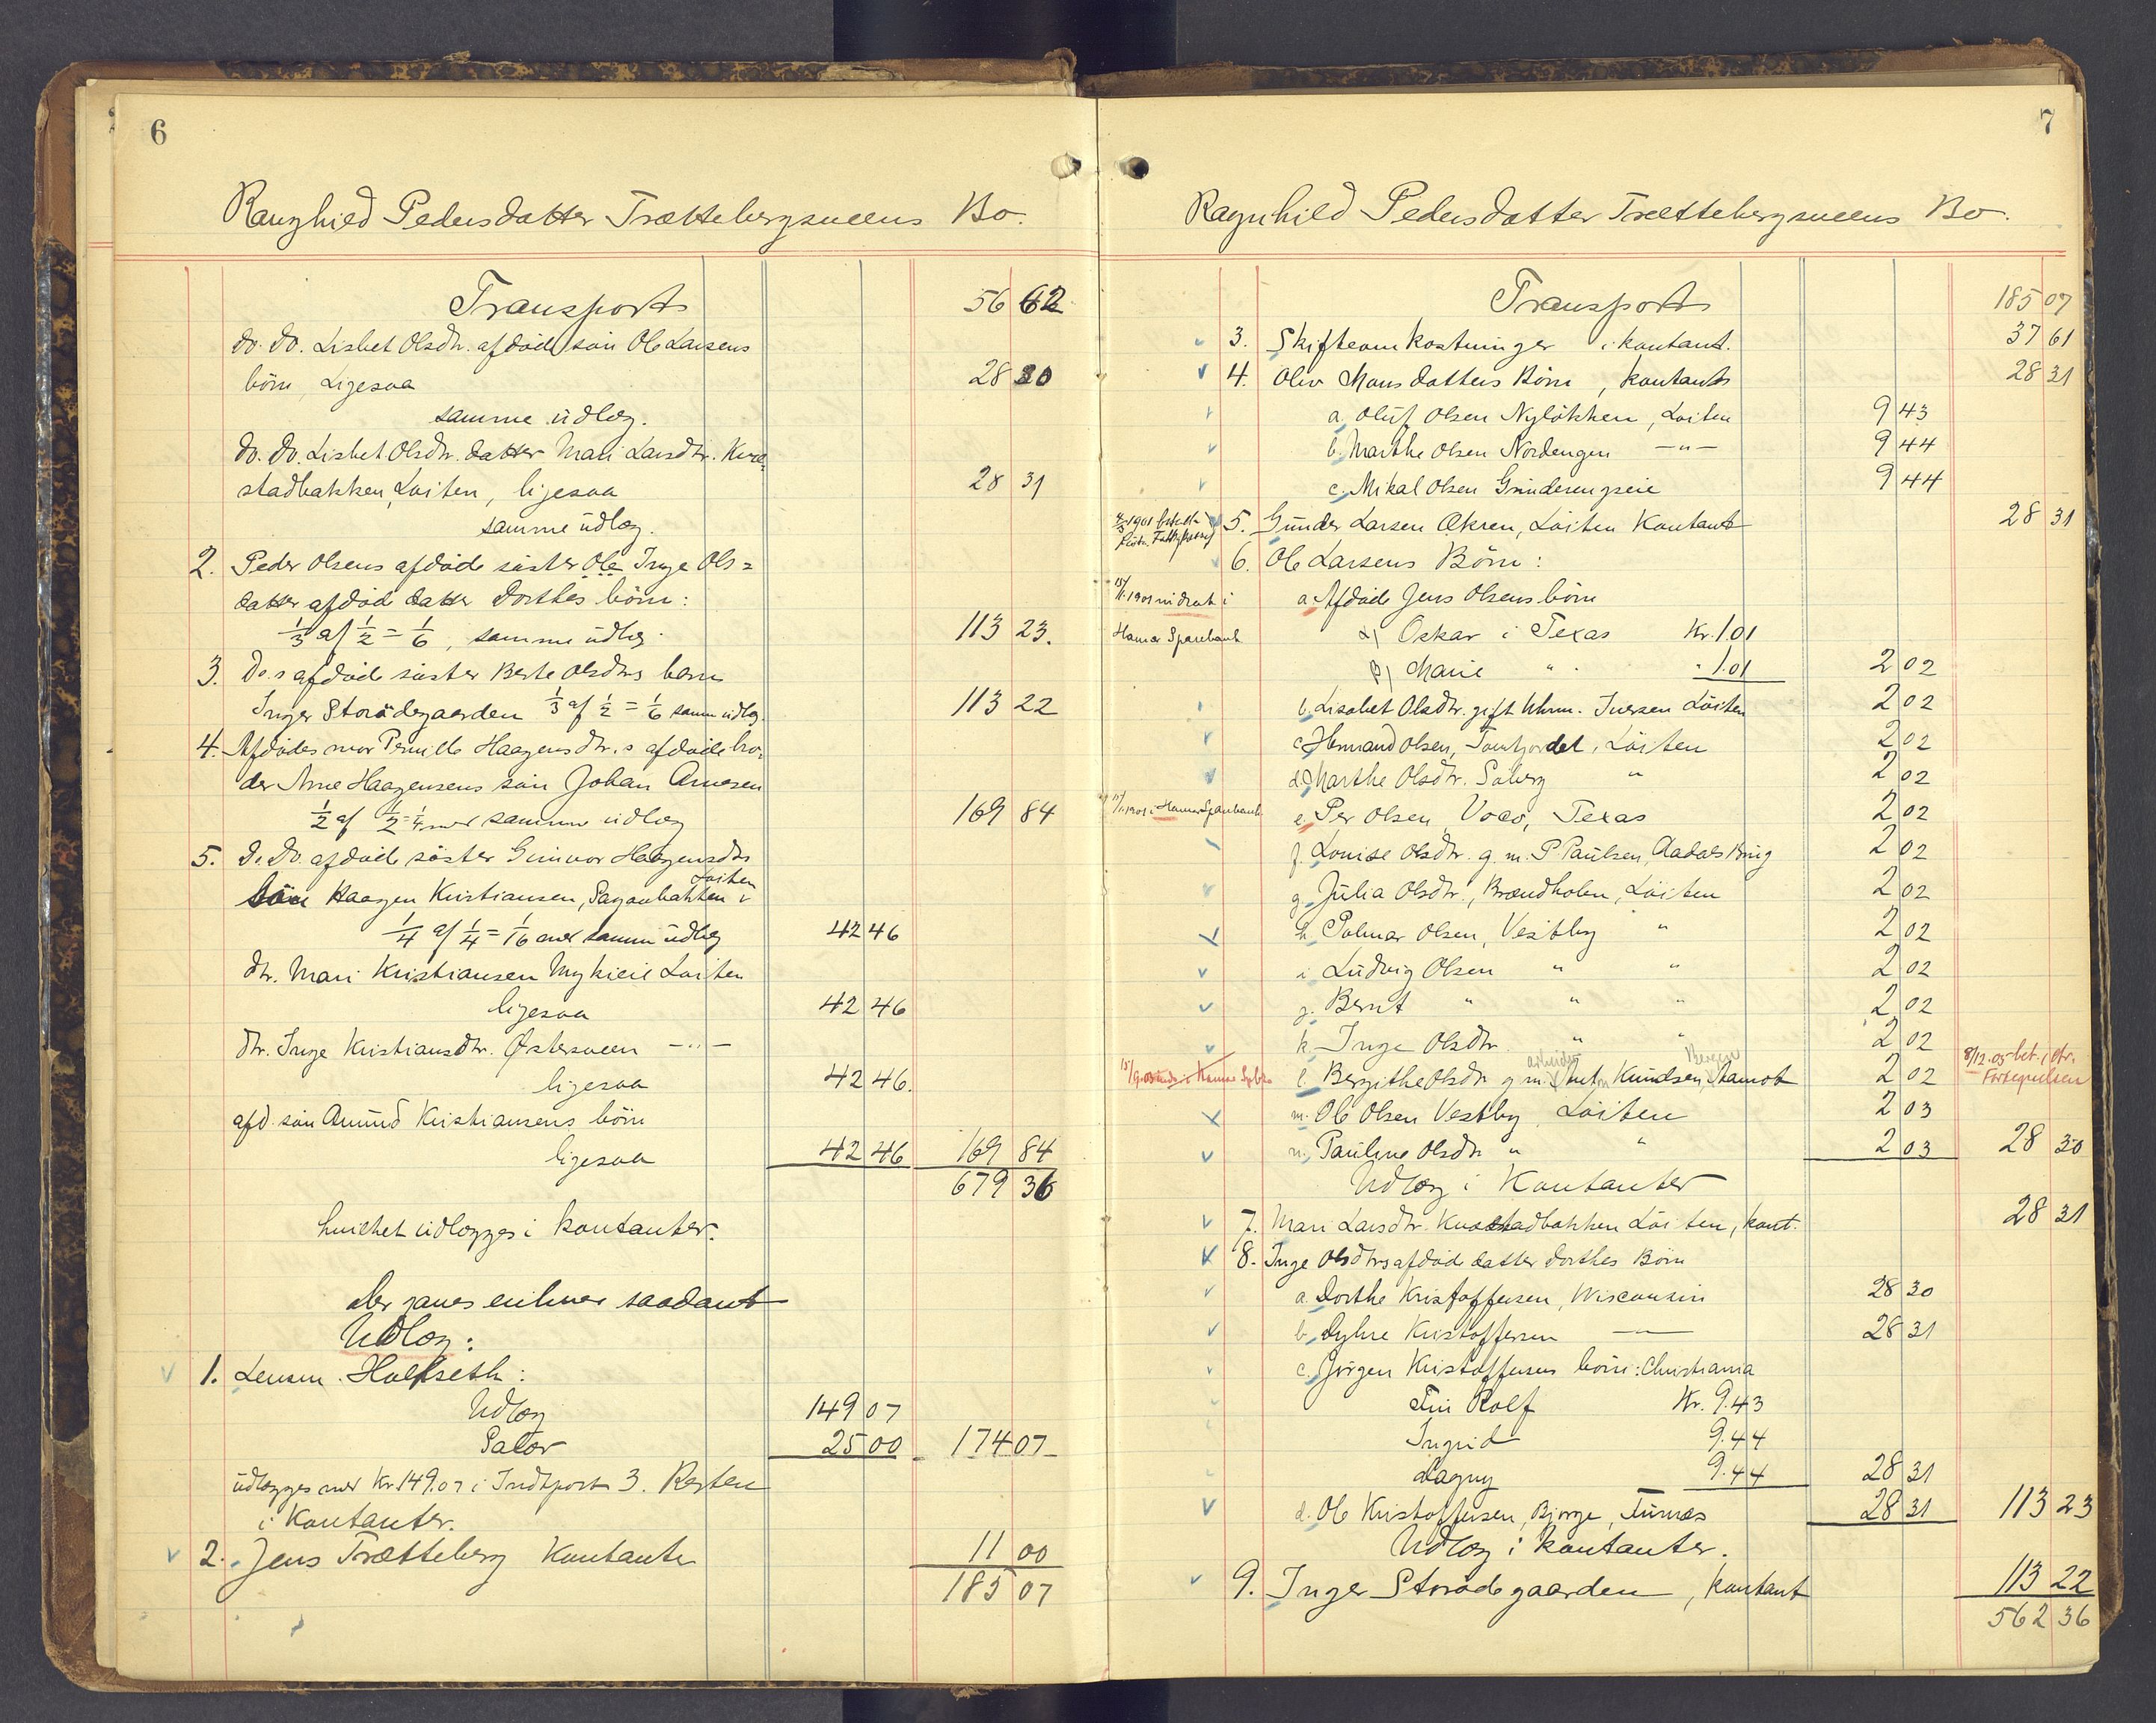 6
Ranghild Pedersdatter Trættebergsveens Bo.
Transport 56 62
do. do. Lisbet Olsdtr. afdöde sön Ole Larsens
börn, Ligesaa 28 30
samme udlæg.
do. do. Lisbet Olsdtr. datter Mari Larsdtr. Kvæ-
stadbakken, Löiten, ligesaa 28 31
samme udlæg.
2. Peder Olsens afdöde söster Ole Inge Ols=
datter afdöd datter Dorthes börn:
1/3 af 1/2 = 1/6, samme udlæg. 113 23.
3. Do.s afdöde söster Berte Olsdtrs barn
Inger Storödegaarden 1/3 af 1/2 = 1/6 samm udlæg. 113 22
4. Afdödes mor Pernille Haagensdtr.s afdöde bro-
der Arne Haagensens sön Johan Arnesen
1/2 af 1/2 = 1/4 med samme udlæg 169 84
5. Do. Do. afdöde söster Gunvor Haagensdtrs
sön Haagen Kristiansen, Paganbakken i Löiten
1/4 af 1/4 = 1/16 med samm udlæg 42 46
dtr. Mari Kristiansen Myhieie Löiten
ligesaa 42 46
dtr. Inge Kristiansdtr. Østersveen —"—
ligesaa 42 46.
afd. sön Amund Kristiansens börn
ligesaa 42 46 169 84
679 36
hvilket udlægges i kontanter.
Der gaves enhver saadant
Udlæg:
1. Lensm. Hoelseth:
Udlæg 149 07
Salær 25 00 174 07
udlægges med Kr. 149.07 i Indtpost 3. Resten
i Kontanter.
2. Jens Trætteberg Kontanter 11 00
185 07
7
Ragnhild Pedersdatter Trættebergsveens Bo.
Transport 185 07
3. Skifteomkostninger i kontant. 37 61
4. Oliv Monsdatters Börn, kontant 28 31
a, Oluf Olsen Nylökken, Löiten 9 43
b. Marthe Olsen Nordengen —"— 9 44
c. Mikal Olsen Grinderengseie 9 44
5. Gunder Larsen Økren, Löiten Kontant 28 31
6. Ole Larsens Börn:
15/11.1901 indsat i
a. Afdöde Jens Olsens börn
Hamar Sparebank
α) Oskar i Texas Kr. 1.01
β) Marie " " 1.01 2 02
b. Lisabet Olsdtr. gift Iversen Löiten 2 02
c. Hermand Olsen, Tomtjordet, Löiten 2 02
d. Marthe Olsdtr. Soberg " 2 02
15/11.1901 i Hamar Sparebank
e. Per Olsen Voco, Texas 2 02
f. Lovise Olsdtr. g. m. P. Paulsen, Aadals Brug 2 02
g. Julia Olsdtr., Brændholen, Löiten 2 02
h. Palmar Olsen, Vestby " 2 02
i. Ludvig Olsen " " 2 02
j. Bernt " " " 2 02
k. Inge Olsdtr. " " 2 02
l. Bergithe Olsdtr g. m. arbeider Ant. Knudsen, Hamar Bergen 2 02
8/12.05 bet. i
m. Ole Olsen Vestby, Löiten 2 03
n. Pauline Olsdtr " " 2 03 28 30
Udlæg i Kontanter
7. Mari Larsdtr. Kvæstadbakken Löiten, kont. 28 31
8. Inge Olsdtrs afdöde datter Dorthes Börn
a. Dorthe Kristoffersen, Wisconsin 28 30
b. Kristoffersen — 28 31
c. Jörgen Kristoffersens börn: Christiania
Finn Rolf Kr. 9.43
Ingrid 9.44
Dagny 9.44 28 31
d. Ole Kristoffersen, Bjørge, Furnæs 28 31 113 23
Udlæg i kontanter.
9. Inger Storödegaarden, kontant 113 22
562 36